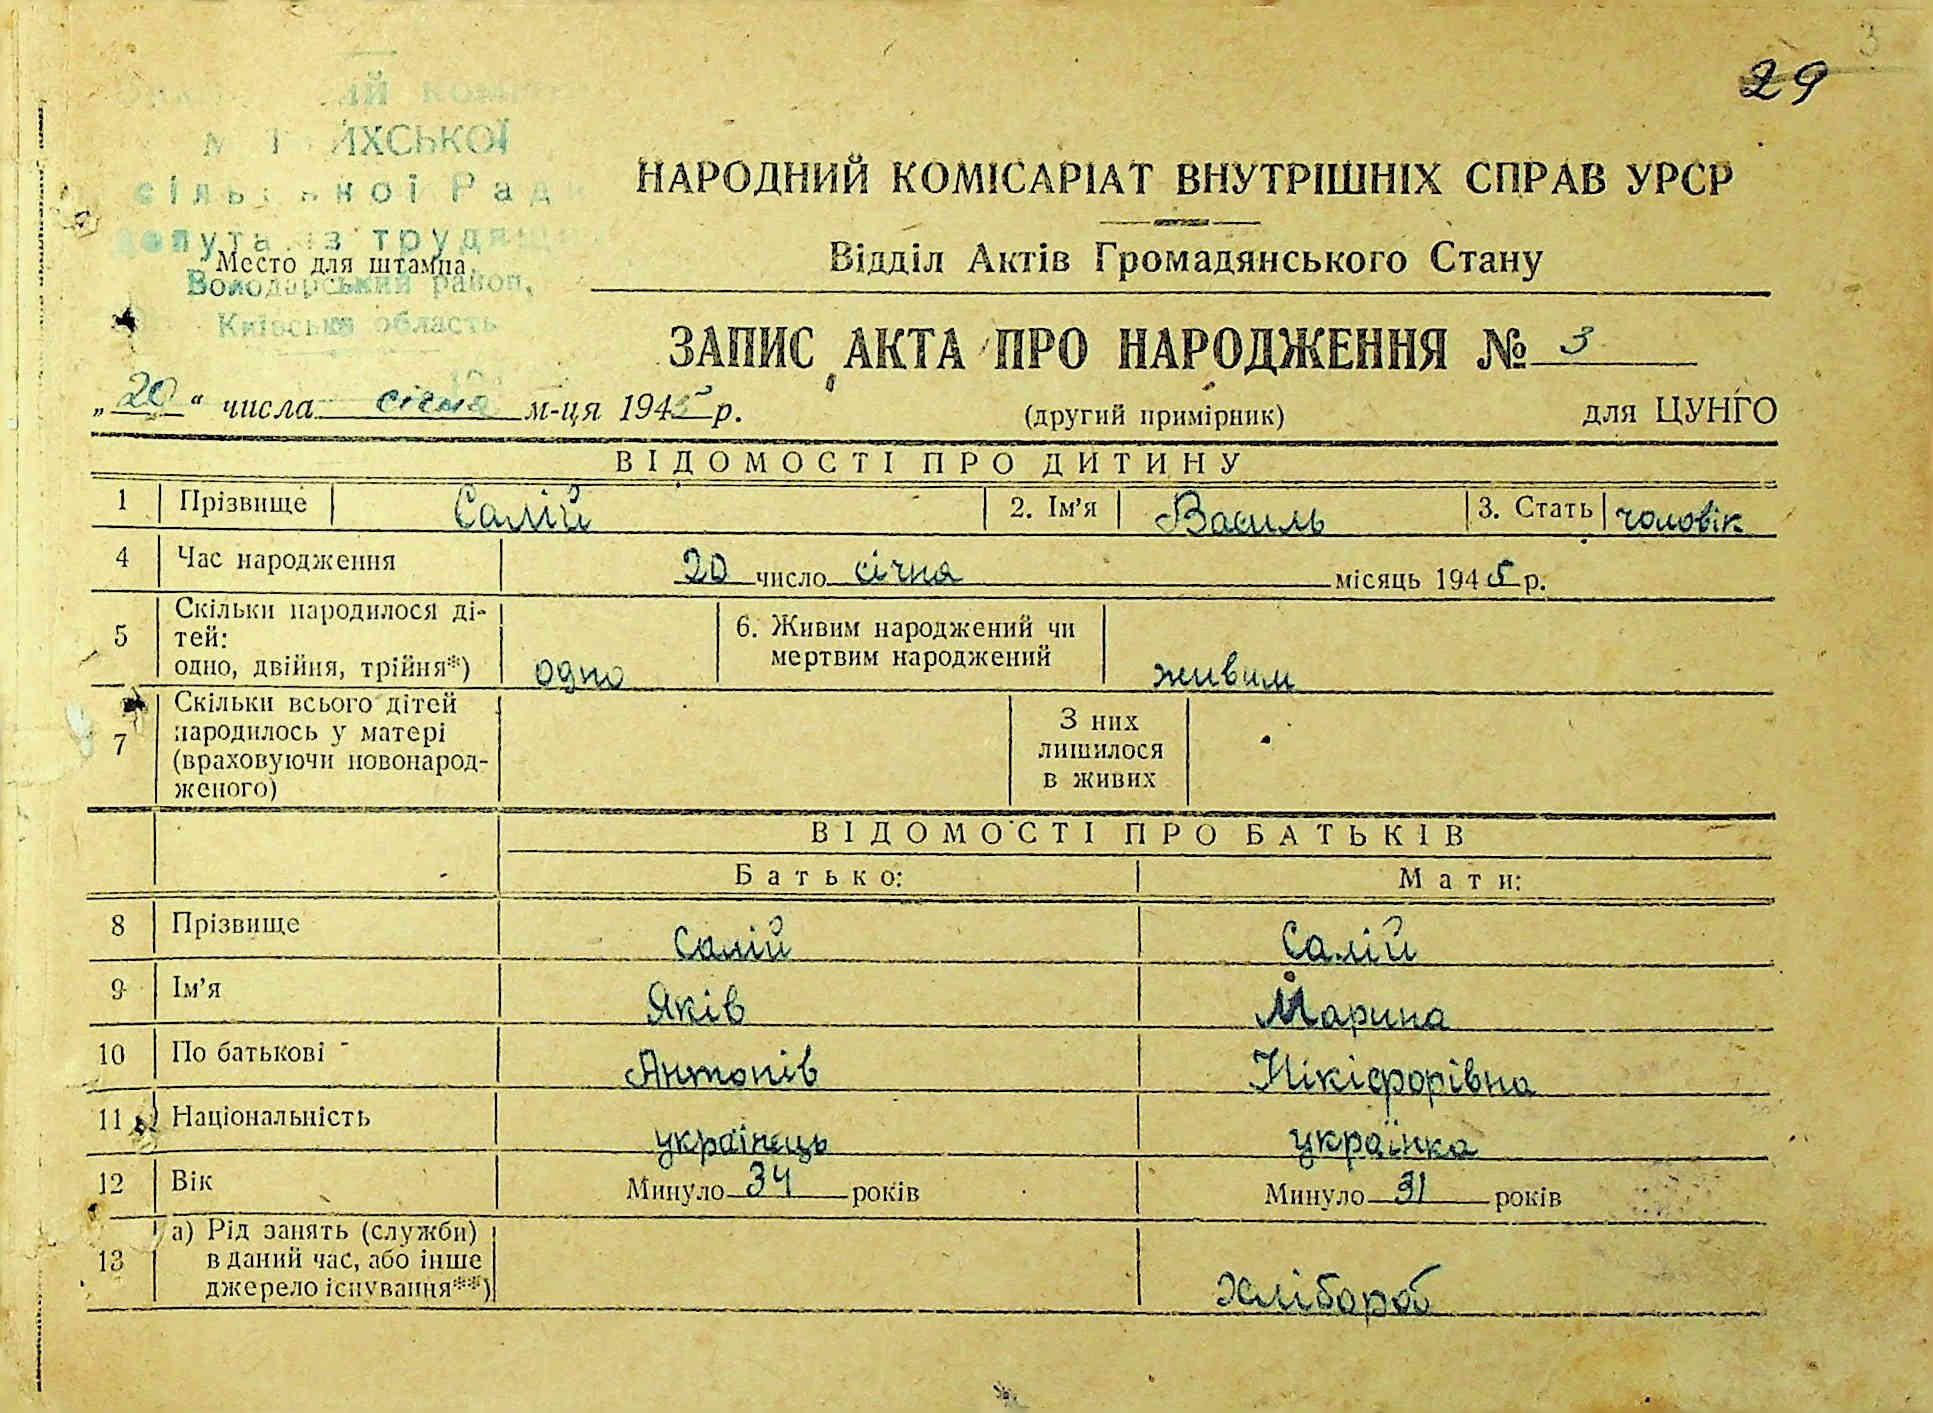 3
29
ИХСЬКОЇ
НАРОДНИЙ КОМІСАРІАТ ВНУТРІШНІХ СПРАВ УРСР
Відділ Актів Громадянського Стану
Место для штампа
Володарський район,
Київська область
ЗАПИС АКТА ПРО НАРОДЖЕННЯ № 3
„20“ числа січня м-ця 1945 р. (другий примірник) для ЦУНГО
ВІДОМОСТІ ПРО ДИТИНУ
1 Прізвище Салій 2. Ім’я Василь 3. Стать чоловік
4 Час народження 20 число січня місяць 1945 р.
5 Скільки народилося ді-
тей:
одно, двійня, трійня*) одно 6. Живим народжений чи
мертвим народжений живим
7 Скільки всього дітей
народилось у матері
(враховуючи новонарод-
женого)
З них
лишилося
в живих
ВІДОМОСТІ ПРО БАТЬКІВ
Батько: Мати:
8 Прізвище Салій Салій
9 Ім’я Яків Марина
10 По батькові Антонів Нікіфорівна
11 Національність українець українка
12 Вік Минуло 34 років Минуло 31 років
13 а) Рід занять (служби)
в даний час, або інше
джерело існування**) хлібороб